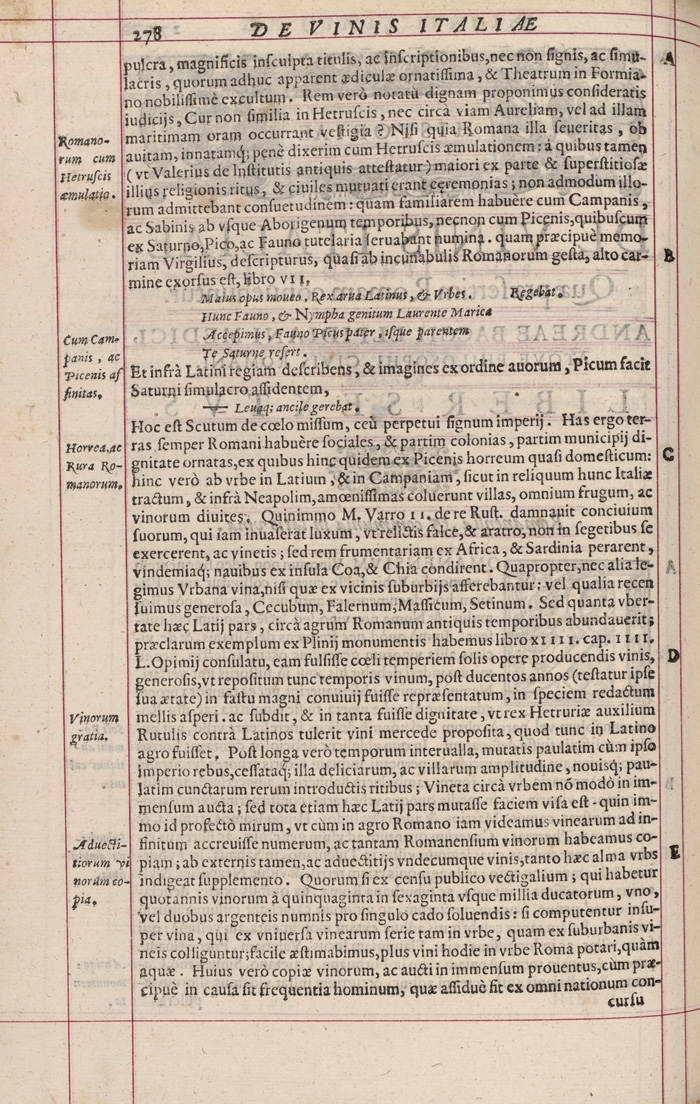 278 DE VINIS ITALIÆ
pulcra, magnificis insculpta titulis, ac inscriptionibus, nec non signis, ac simu-
lacris, quorum adhuc apparent ædiculæ ornatissima, & Theatrum in Formia-
no nobilissimè excultum. Rem verò notatu dignam proponimus consideratis
iudicijs, Cur non similia in Hetruscis, nec circà viam Aureliam, vel ad illam
maritimam oram occurrant vestigia? Nisi quia Romana illa seueritas, ob
auitam, innatamq; penè dixerim cum Hetruscis æmulationem: à quibus tamen
(vt Valerius de Institutis antiquis attestatur) maiori ex parte & superstitiosæ
illius religionis ritus, & ciuiles mutuati erant ceremonias; non admodum illo-
rum admittebant consuetudinem: quam familiarem habuère cum Campanis,
ac Sabinis ab vsque Aborigenum temporibus, necnon cum Picenis, quibuscum
ex Saturno, Pico, ac Fauno tutelaria seruabant numina. quam præcipuè memo-
riam Virgilius, descripturus, quasi ab incunabulis Romanorum gesta, alto car-
mine exorsus est, libro VII,
Maius opus moueo, Rex arua Latinus, & Vrbes. Regebat.
Hunc Fauno, & Nympha genitum Laurente Marica
Accepimus, Fauno Picus pater, isque parentem
Te Saturne refert.
Et infrà Latini regiam describens, & imagines ex ordine auorum, Picum facit
Saturni simulacro assidentem,
— Leuaq; ancile gerebat.
Hoc est Scutum de cœlo missum, ceù perpetui signum imperij. Has ergo ter-
ras semper Romani habuère sociales, & partim colonias, partim municipij di-
gnitate ornatas, ex quibus hinc quidem ex Picenis horreum quasi domesticum:
hinc verò ab vrbe in Latium, & in Campaniam, sicut in reliquum hunc Italiæ
tractum, & infrà Neapolim, amœnissimas coluerunt villas, omnium frugum, ac
vinorum diuites. Quinimmo M. Varro II. de re Rust. damnauit conciuium
suorum, qui iam inuaserat luxum, vt relictis falce, & aratro, non in segetibus se
exercerent, ac vinetis; sed rem frumentariam ex Africa, & Sardinia perarent,
vindemiaq; nauibus ex insula Coa, & Chia condirent. Quapropter, nec alia le-
gimus Vrbana vina, nisi quæ ex vicinis suburbijs afferebantur: vel qualia recen
suimus generosa, Cecubum, Falernum, Massicum, Setinum. Sed quanta vber-
tate hæc Latij pars, circà agrum Romanum antiquis temporibus abundauerit;
præclarum exemplum ex Plinij monumentis habemus libro XIIII. cap. IIII.
L. Opimij consulatu, eam fulsisse cœli temperiem solis opere producendis vinis,
generosis, vt repositum tunc temporis vinum, post ducentos annos (testatur ipse
sua ætate) in fastu magni conuiuij fuisse repræsentatum, in speciem redactum
mellis asperi. ac subdit, & in tanta fuisse dignitate, vt rex Hetruriæ auxilium
Rutulis contrà Latinos tulerit vini mercede proposita, quod tunc in Latino
agro fuisset. Post longa verò temporum interualla, mutatis paulatim cùm ipso
imperio rebus, cessataq; illa deliciarum, ac villarum amplitudine, nouisq; pau-
latim cunctarum rerum introductis ritibus; Vineta circà vrbem nō modò in im-
mensum aucta; sed tota etiam hæc Latij pars mutasse faciem visa est. quin im-
mo id profectò mirum, vt cùm in agro Romano iam videamus vinearum ad in-
finitum accreuisse numerum, ac tantam Romanensium vinorum habeamus co-
piam; ab externis tamen, ac aduectitijs vndecumque vinis, tanto hæc alma vrbs
indigeat supplemento. Quorum si ex censu publico vectigalium; qui habetur
quotannis vinorum à quinquaginta in sexaginta vsque millia ducatorum, vno,
vel duobus argenteis numnis pro singulo cado soluendis: si computentur insu-
per vina, qui ex vniuersa vinearum serie tam in vrbe, quam ex suburbanis vi-
neis colliguntur; facile æstimabimus, plus vini hodie in vrbe Roma potari, quàm
aquæ. Huius verò copiæ vinorum, ac aucti in immensum prouentus, cùm præ-
cipuè in causa sit frequentia hominum, quæ assiduè fit ex omni nationum con-
cursu
Romano-
rum cum
Hetruscis
æmulatio.
Cum Cam-
panis, ac
Picenis af
finitas.
Horrea, ac
Rura Ro-
manorum.
Vinorum
gratia.
Aduecti-
tiorum vi
norum co-
pia.
A
B
C
D
E